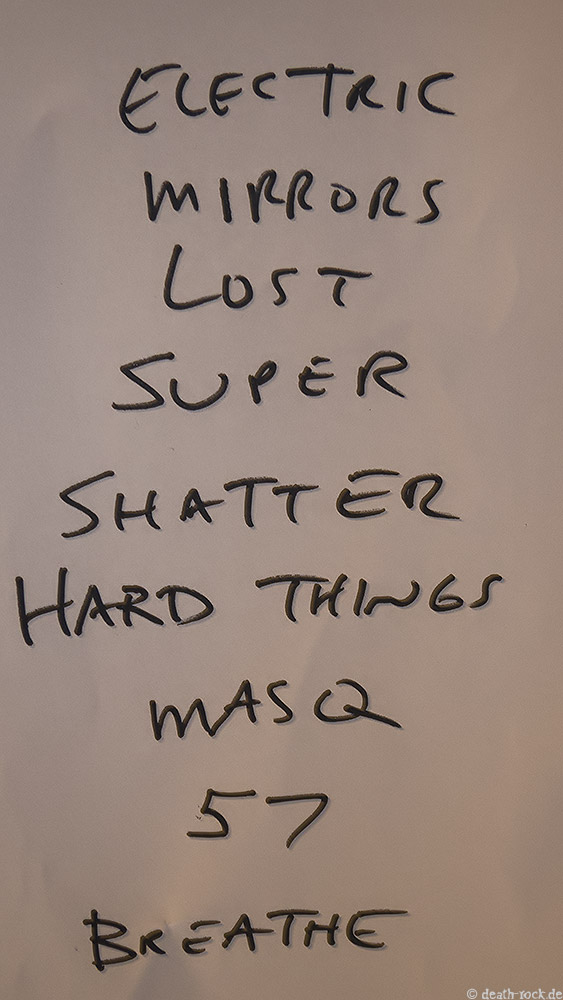 ELECTRIC
MIRRORS
LOST
SUPER
SHATTER
HARD THINGS
MASQ
57
BREATHE
© death-rock.de